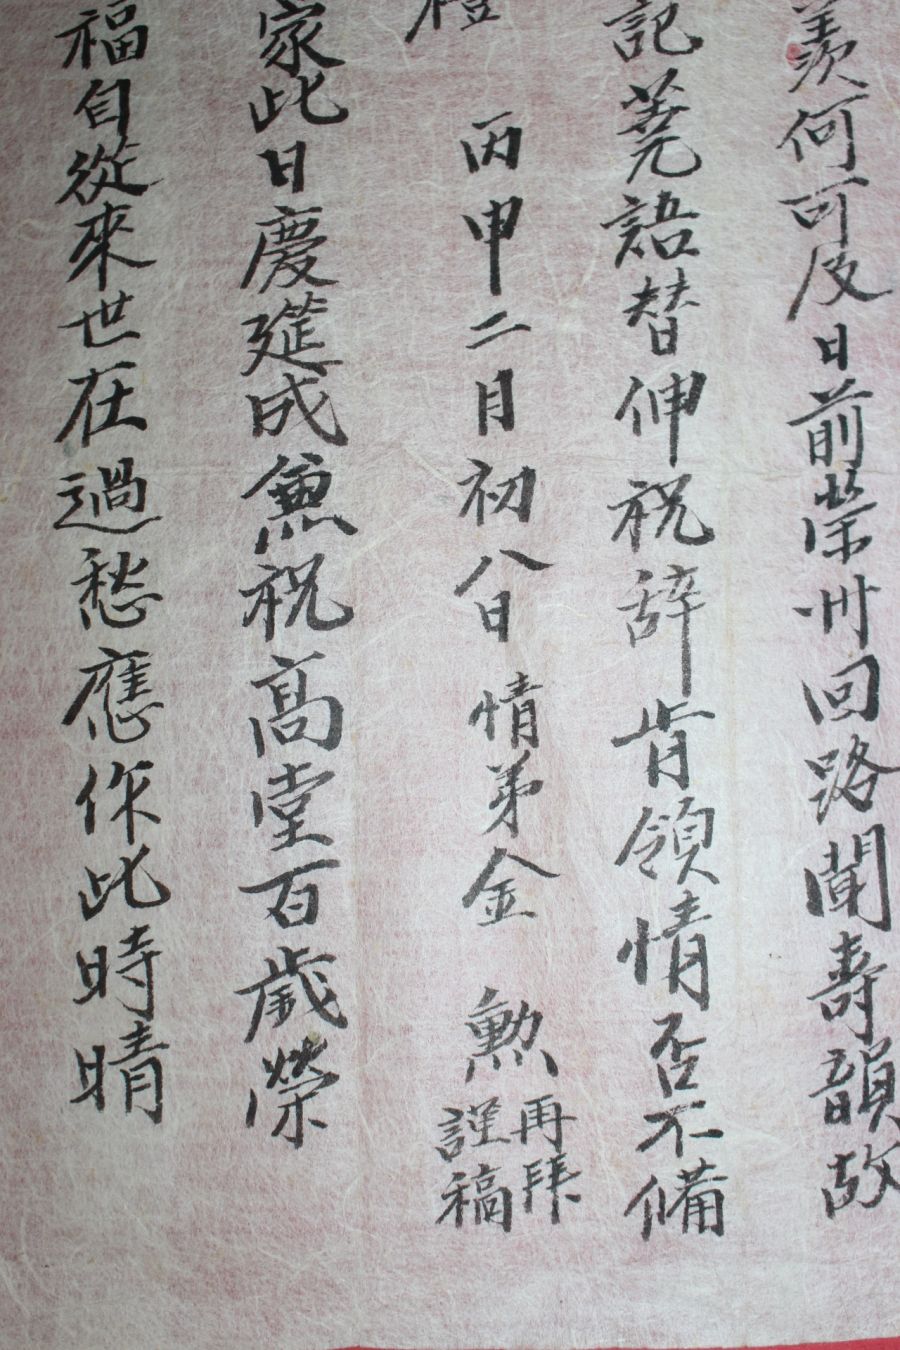 羨何可及日前榮州回路聞壽韻故
記蕘語替伸祝辞肯領情否不備
禮
丙申二月初八日 情弟金 勲 再拜
謹稿
家此日慶莚成兼祝高堂百歲榮
福自從來世在過愁應作此時晴